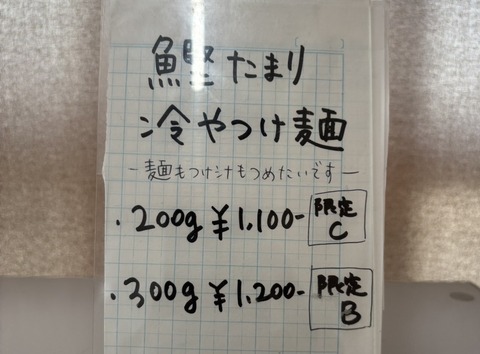 鰹たまり
冷やつけ麺
-麺もつけ汁もつめたいです-
・200g ¥1,100- 限定
C
・300g ¥1,200- 限定
B